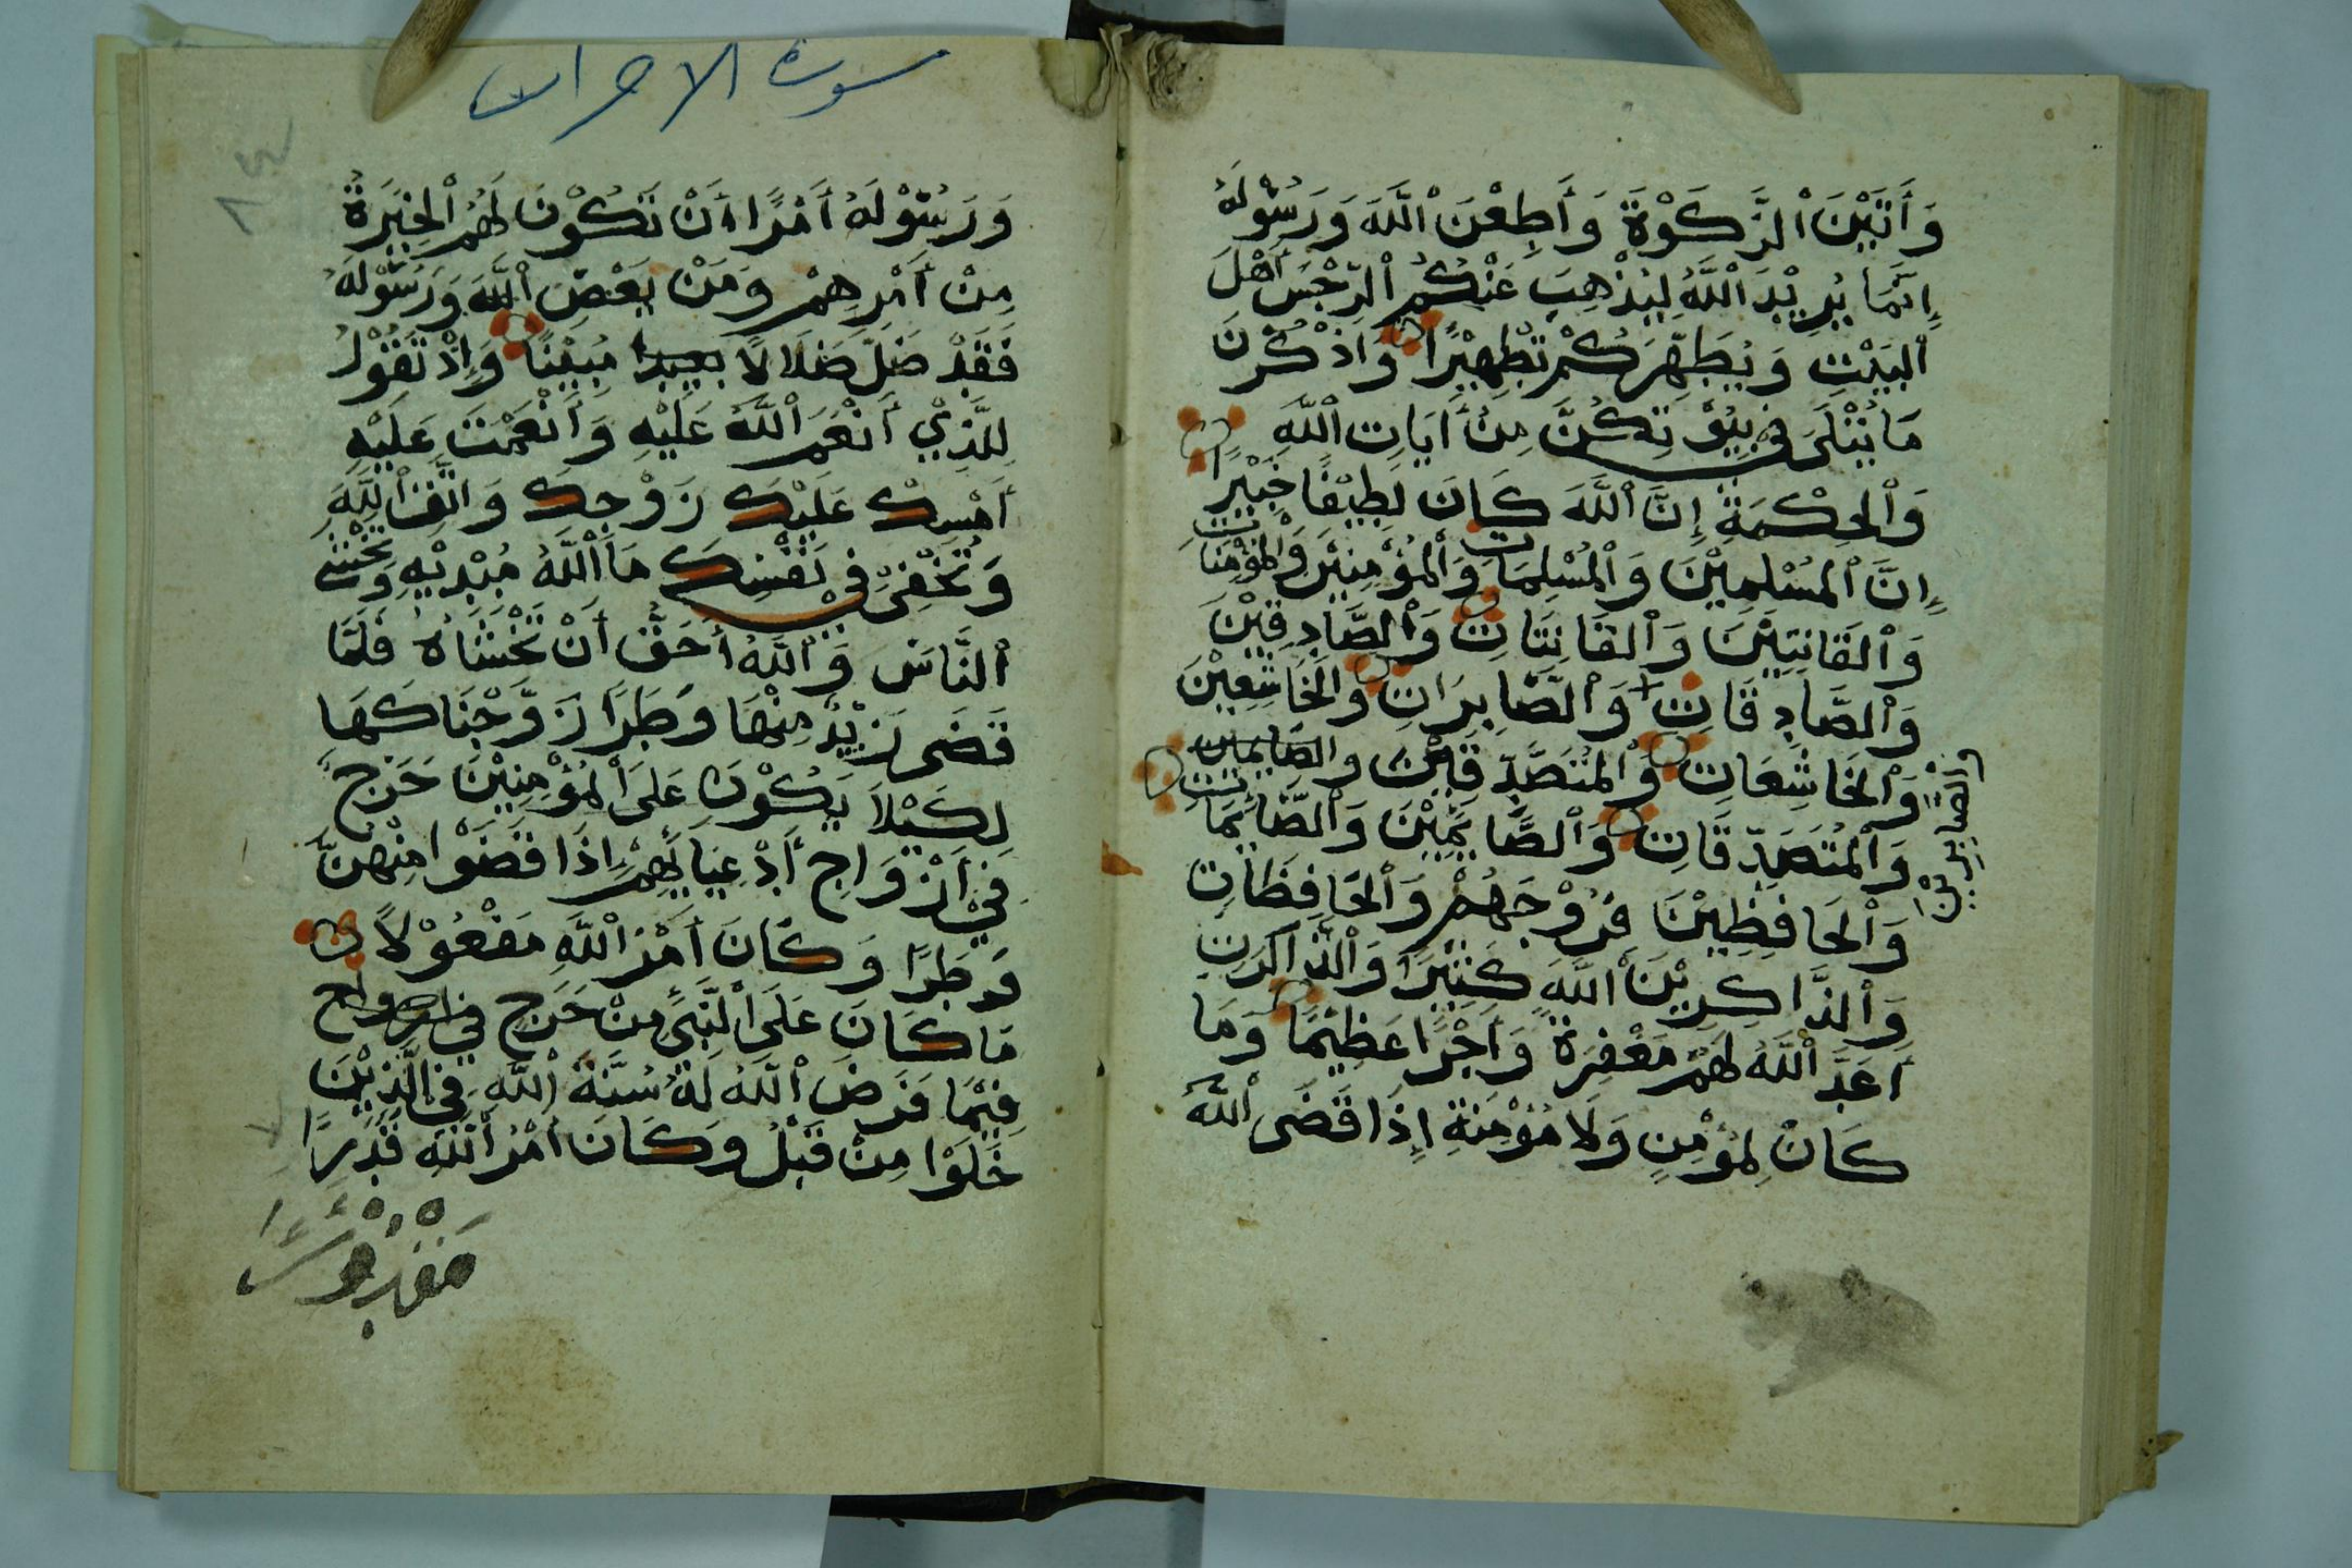 وَأَتَيْنَ ٱلزَّكَوْةَ وَأَطِعْنَ ٱللَّهَ وَرَسُوْلَهُ
إِنَّمَا يُرِيْدُ ٱللَّهُ لِيُذْهِبَ عَنْكُمُ ٱلرِّجْسَ أَهْلَ
ٱلبَيْتِ وَيُطَهِّرَكُمْ تَطْهِيْرًا وَاذْكُرْنَ
مَا يُتْلَى فِي بُيُوْتِكُنَّ مِنْ أَيَاتِ ٱللَّهِ
وَٱلحِكْمَةِ إِنَّ ٱللَّهَ كَانَ لَطِيْفًا خَبِيْرًا
إِنَّ ٱلمُسْلِمِيْنَ وَٱلمُسْلِمَاتِ وَٱلمُؤْمِنِيْنَ وَٱلمُؤْمِنَاتِ
وَٱلقَانِتِيْنَ وَٱلقَانِتَاتِ وَٱلصَّادِقِيْنَ
وَٱلصَّادِقَاتِ وَٱلصَّابِرَاتِ وَٱلخَاشِعِيْنَ
وَٱلصَّابِرِيْنَ
وَٱلخَاشِعَاتِ وَٱلمُتَصَدِّقِيْنَ والصَّايمين
وَٱلمُتَصَدِّقَاتِ وَٱلصَّايِمِيْنَ وَٱلصَّائِمَاتِ
وَٱلحَافِظِيْنَ فُرُوْجَهُمْ وَٱلحَافِظَاتِ
وَٱلذَّاكِرِيْنَ ٱللَّهَ كَثِيْرًا وَٱلذَّاكِرَتِ
أَعَدَّ ٱللَّهُ لَهُمْ مَغْفِرَةً وَأَجْرًا عَظِيْمًا وَمَا
كَانَ لِمُؤْمِنٍ وَلَا مُؤْمِنَةٍ إِذَا قَضَى ٱللَّهُ
سورة الاحزاب
وَرَسُوْلَهُ أَمْرًا أَنْ تَكُوْنَ لَهُمُ ٱلخِيَرَةُ
مِنْ أَمْرِهِمْ وَمَنْ يَعْصِ ٱللَّهَ وَرَسُوْلَهُ
فَقَدْ ضَلَّ ضَلَالًا بعيدا مُبِيْنًا وَإِذْ تَقُوْلُ
لِلَّذِيْ أَنْعَمَ ٱللَّهُ عَلَيْهِ وَأَنْعَمْتَ عَلَيْهِ
أَمْسِكْ عَلَيْكَ زَوْجَكَ وَاتَّقِ ٱللَّهَ
وَتُخْفِيْ فِي نَفْسِكَ مَا ٱللَّهُ مُبْدِيْهِ وَتَخْشَى
ٱلنَّاسَ وَٱللَّهُ أَحَقُّ أَنْ تَخْشَاهُ فَلَمَّا
قَضَى زَيْدٌ مِنْهَا وَطَرًا زَوَّجْنَاكَهَا
لِكَيْلَا يَكُوْنَ عَلَى ٱلمُؤْمِنِيْنَ حَرَجٌ
فِيْ أَزْوَاجِ أَدْعِيَايِهِمْ إِذَا قَضَوْا مِنْهُنَّ
وَطَرًا وَكَانَ أَمْرُ ٱللَّهِ مَفْعُوْلًا
مَا كَانَ عَلَى ٱلنَّبِيِّ مِنْ حَرَجٍ فِي ازواج
فِيْمَا فَرَضَ ٱللَّهُ لَهُ سُنَّةَ ٱللَّهِ فِي ٱلَّذِيْنَ
خَلَوْا مِنْ قَبْلُ وَكَانَ أَمْرُ ٱللَّهِ قَدَرًا
مَقْدُوْرًا